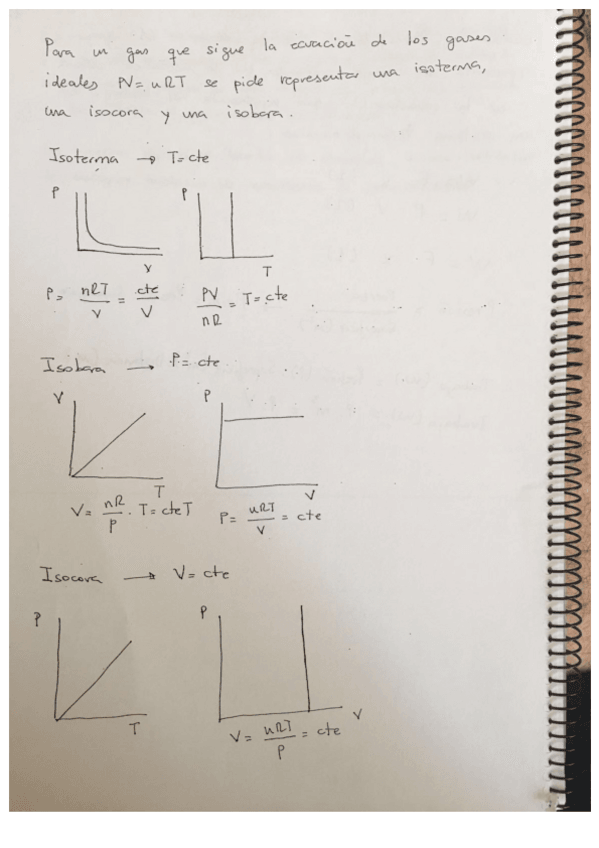 Para un gas que sigue la ecuación de los gases
ideales PV=nRT se pide representar una isoterma,
una isocora y una isobara.
Isoterma → T=cte
P
V
P
T
P= nRT/V = cte/V
PV/nR = T=cte
Isobara → P=cte
V
T
P
V
V= nR/P · T=cte T
P= nRT/V = cte
Isocora → V=cte
P
T
P
V
V= nRT/P = cte